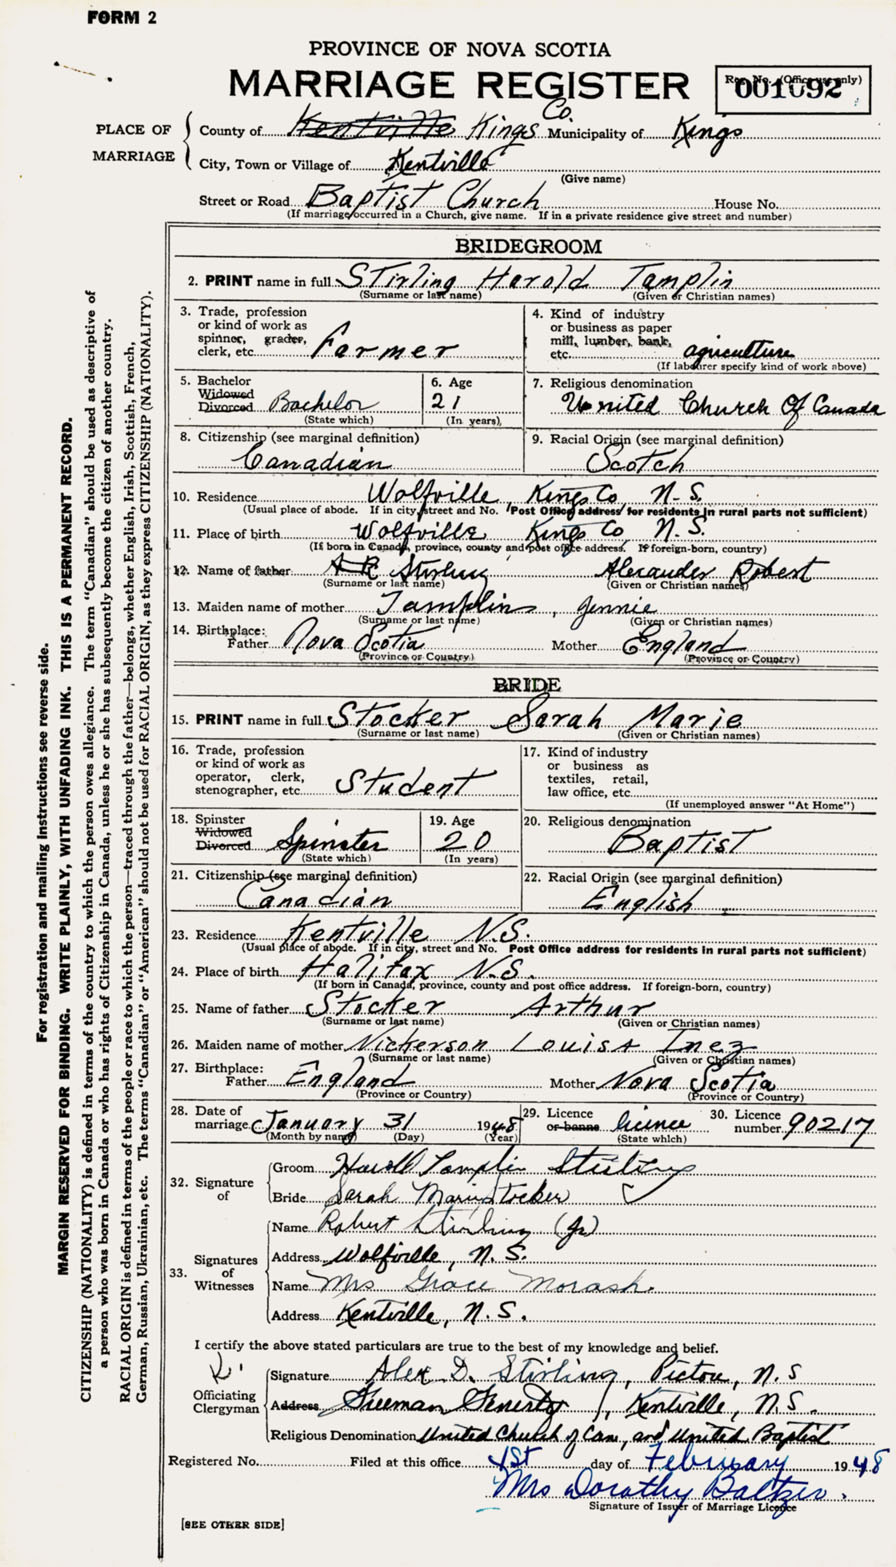 FORM 2
PROVINCE OF NOVA SCOTIA
MARRIAGE REGISTER
Reg. No. (Office use only)
001092
PLACE OF MARRIAGE
County of Kentville Kings Co. Municipality of Kings
City, Town or Village of Kentville
(Give name)
Street or Road Baptist Church House No.
(If marriage occurred in a Church, give name. If in a private residence give street and number)
BRIDEGROOM
2. PRINT name in full Stirling Harold Tamplin
(Surname or last name) (Given or Christian names)
3. Trade, profession or kind of work as spinner, grader, clerk, etc. Farmer
4. Kind of industry or business as paper mill, lumber, bank, etc. agriculture
(If labourer specify kind of work above)
5. Bachelor Widowed Divorced Bachelor
(State which)
6. Age 21
(In years)
7. Religious denomination
United Church Of Canada
8. Citizenship (see marginal definition)
Canadian
9. Racial Origin (see marginal definition)
Scotch
10. Residence Wolfville, Kings Co, N.S.
(Usual place of abode. If in city, street and No. Post Office address for residents in rural parts not sufficient)
11. Place of birth Wolfville Kings Co, N.S.
(If born in Canada, province, county and post office address. If foreign-born, country)
12. Name of father A R Stirling Alexander Robert
(Surname or last name) (Given or Christian names)
13. Maiden name of mother Tamplin, Jennie
(Surname or last name) (Given or Christian names)
14. Birthplace: Father Nova Scotia Mother England
(Province or Country) (Province or Country)
BRIDE
15. PRINT name in full Stocker Sarah Marie
(Surname or last name) (Given or Christian names)
16. Trade, profession or kind of work as operator, clerk, stenographer, etc. Student
17. Kind of industry or business as textiles, retail, law office, etc.
(If unemployed answer "At Home")
18. Spinster Widowed Divorced Spinster
(State which)
19. Age 20
(In years)
20. Religious denomination
Baptist
21. Citizenship (see marginal definition)
Canadian
22. Racial Origin (see marginal definition)
English
23. Residence Kentville N.S.
(Usual place of abode. If in city, street and No. Post Office address for residents in rural parts not sufficient)
24. Place of birth Halifax N.S.
(If born in Canada, province, county and post office address. If foreign-born, country)
25. Name of father Stocker Arthur
(Surname or last name) (Given or Christian names)
26. Maiden name of mother Nickerson Louisa Inez
(Surname or last name) (Given or Christian names)
27. Birthplace: Father England Mother Nova Scotia
(Province or Country) (Province or Country)
28. Date of marriage January 31 1948
(Month by name) (Day) (Year)
29. Licence or banns licence
(State which)
30. Licence number 90217
32. Signature of
Groom Harold Tamplin Stirling
Bride Sarah Marie Stocker
33. Signatures of Witnesses
Name Robert Stirling (Jr)
Address Wolfville, N.S.
Name Mrs Grace Morash.
Address Kentville, N.S.
I certify the above stated particulars are true to the best of my knowledge and belief.
Officiating Clergyman
Signature Alex D. Stirling, Pictou, N.S
Address Freeman Fenerty, Kentville, N.S.
Religious Denomination United Church of Can, and United Baptist
Registered No. Filed at this office 1st day of February 1948
Mrs Dorothy Baltzer.
Signature of Issuer of Marriage Licence
[SEE OTHER SIDE]
For registration and mailing instructions see reverse side.
MARGIN RESERVED FOR BINDING. WRITE PLAINLY, WITH UNFADING INK. THIS IS A PERMANENT RECORD.
CITIZENSHIP (NATIONALITY) is defined in terms of the country to which the person owes allegiance. The term "Canadian" should be used as descriptive of
a person who was born in Canada or who has rights of Citizenship in Canada, unless he or she has subsequently become the citizen of another country.
RACIAL ORIGIN is defined in terms of the people or race to which the person—traced through the father—belongs, whether English, Irish, Scottish, French,
German, Russian, Ukrainian, etc. The terms "Canadian" or "American" should not be used for RACIAL ORIGIN, as they express CITIZENSHIP (NATIONALITY).